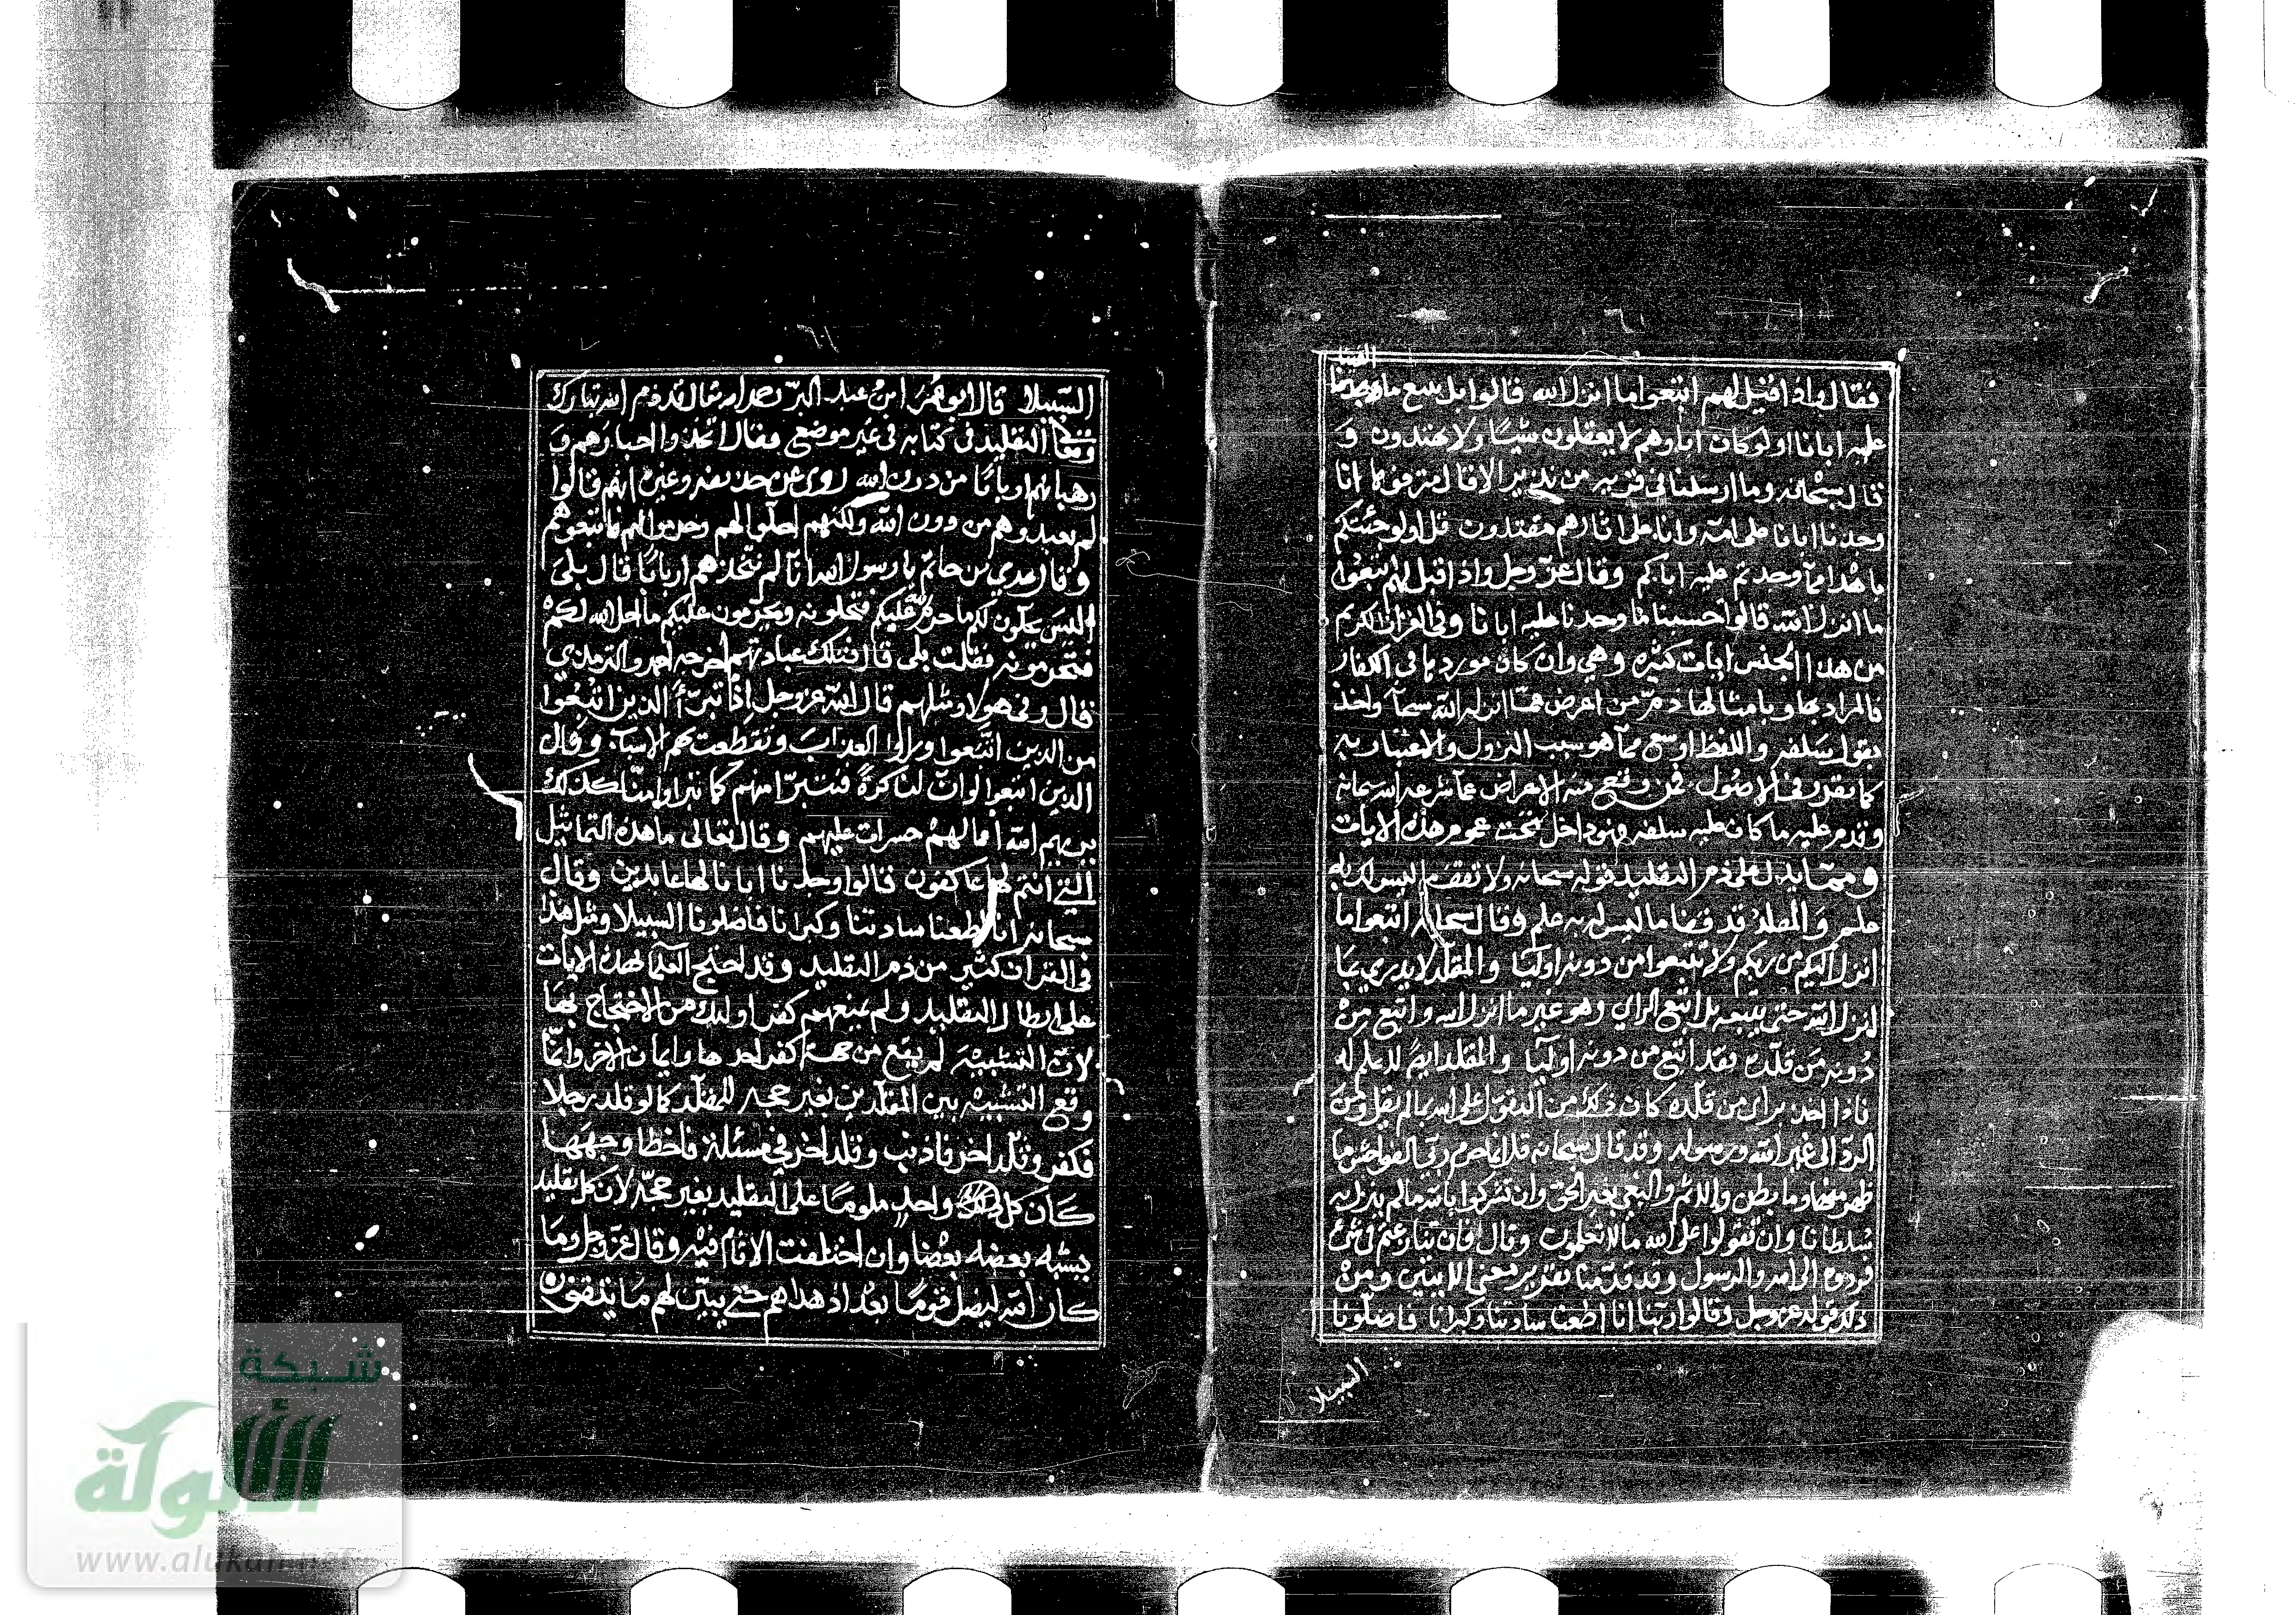 الفينا
فقال واذا قيل لهم اتبعوا ما انزل الله قالوا بل نتبع ما وجدنا
عليه ابانا اولو كان اباوهم لا يعقلون شيئا ولا يهتدون و
قال سبحانه وما ارسلنا في قرية من نذير الا قال مترفوها انا
وجدنا ابانا على امة وانا على اثارهم مقتدون قل اولو جئتكم
باهدا مما وجدتم عليه اباكم وقال عز وجل واذا قيل لهم اتبعوا
ما انزل الله قالوا حسبنا ما وجدنا عليه ابانا وفي القران الكريم
من هذا الجنس ايات كثيرة وهي وان كان موردها في الكفار
فالمراد بها وبامثالها ذم من اعرض عما انزله الله سبحانه واخذ
بقول سلفه واللفظ اوسع مما هو سبب النزول والاعتبار به
كما تقرر في الاصول فمن وقع منه الاعراض عما شرعه الله سبحانه
وقدم عليه ما كان عليه سلفه فهو داخل تحت عموم هذه الايات
ومما يدل على ذم التقليد قوله سبحانه ولا تقف ما ليس لك به
علم والمقلد قد قفا ما ليس له به علم وقال سبحانه اتبعوا ما
انزل اليكم من ربكم ولا تتبعوا من دونه اوليا والمقلد لا يدري بما
انزل الله حتى يتبعه بل اتبع الراي وهو غير ما انزل الله واتبع من
دونه من قلده فقد اتبع من دونه اوليا والمقلد ايضا لا علم له
فاذا اخذ براي من قلده كان ذلك من التقول على الله بما لم يقل ومن
الرد الى غير الله ورسوله وقد قال سبحانه قل انما حرم ربي الفواحش ما
ظهر منها وما بطن والاثم والبغي بغير الحق وان تشركوا بالله ما لم ينزل به
سلطانا وان تقولوا على الله ما لا تعلمون وقال فان تنازعتم في شئ
فردوه الى الله والرسول وقد قدمنا تقرير معنى الايتين ومن
ذلك قوله عز وجل وقالوا ربنا انا اطعنا سادتنا وكبرانا فاضلونا
السبيلا
السبيلا قال ابو عمر ابن عبد البر رحمه الله تعالى قد ذم الله تبارك
وتعالى التقليد في كتابه في غير موضع فقال اتخذوا احبارهم و
رهبانهم اربابا من دون الله روى عن حذيفة وغيره انهم قالوا
لم يعبدوهم من دون الله ولكنهم احلوا لهم وحرموا عليهم فاتبعوهم
وقال عدي بن حاتم يا رسول الله انا لم نتخذهم اربابا قال بلى
اليس يحلون لكم ما حرم الله عليكم فتحلونه ويحرمون عليكم ما احل الله لكم
فتحرمونه فقلت بلى قال فتلك عبادتهم اخرجه احمد والترمذي
قال وفي هولا ومثلهم قال الله عز وجل اذ تبرأ الذين اتبعوا
من الذين اتبعوا وراوا العذاب وتقطعت بهم الاسباب وقال
الذين اتبعوا لو ان لنا كرة فنتبرا منهم كما تبراوا منا كذلك
يريهم الله اعمالهم حسرات عليهم وقال تعالى ما هذه التماثيل
التي انتم لها عاكفون قالوا وجدنا ابانا لها عابدين وقال
سبحانه انا اطعنا سادتنا وكبرانا فاضلونا السبيلا ومثل هذا
في القران كثير من ذم التقليد وقد احتج العلما بهذه الايات
على ابطال التقليد ولم يمنعهم كفر اولئك من الاحتجاج بها
لان التشبيه لم يقع من جهة كفر احدهما وايمان الاخر وانما
وقع التشبيه بين المقلدين بغير حجة للمقلد كما لو قلد رجلا
فكفر وقلد اخر فاذنب وقلد اخر في مسئلة فاخطا وجهها
كان كل واحد ملوما على التقليد بغير حجة لان كل تقليد
يشبه بعضه بعضا وان اختلفت الاثام فيه وقال عز وجل وما
كان الله ليضل قوما بعد اذ هداهم حتى يبين لهم ما يتقون
شبكة
الألوكة
www.alukah.net